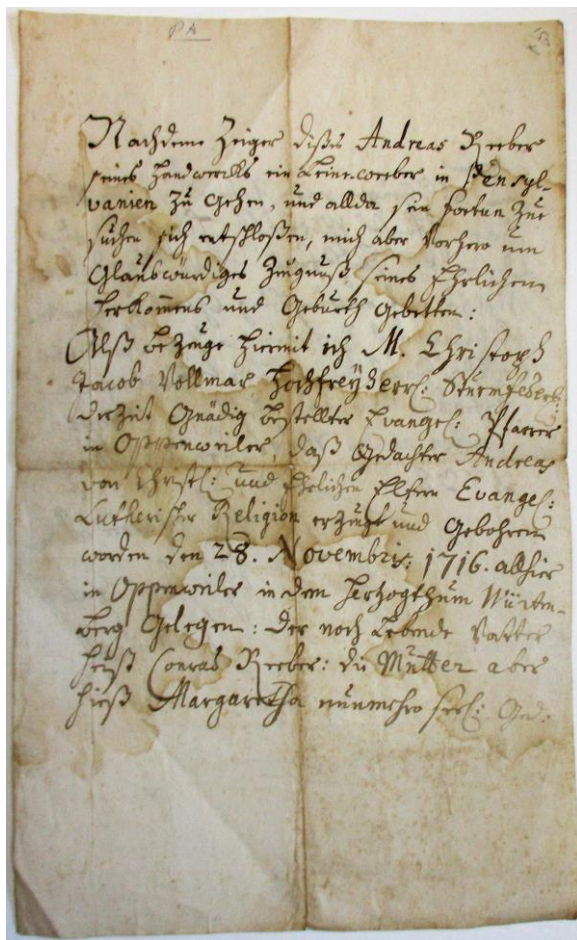 PA
Nachdeme Zeiger dißes Andreas Reeber
seines Handwercks ein Leine-weeber in Pensyl-
vanien zu gehen, und allda sein fortun zue
suchen sich entschloßen, mich aber vorhero um
Glaubwürdiges Zeugnuß seines Ehrlichen
herkom̄ens und Geburth gebetten:
Alß bezeuge hiermit ich M. Christoph
Jacob Vollmar, Hochfreyherrl: Sturmfederl:
derzeit Gnädig bestellter Evangel: Pfarrer
in Oppenweiler, daß gedachter Andreas
von Christl: und Ehrlichen Eltern Evangel:
Lutherischer Religion erzeugt und gebohren
worden den 28. Novembris: 1716. allhier
in Oppenweiler in dem Hertzogthum Würtem-
berg gelegen: der noch Lebende Vatter
heißt Conrad Reeber: die Mutter aber
hieß Margaretha nunmehro seel: Ged: